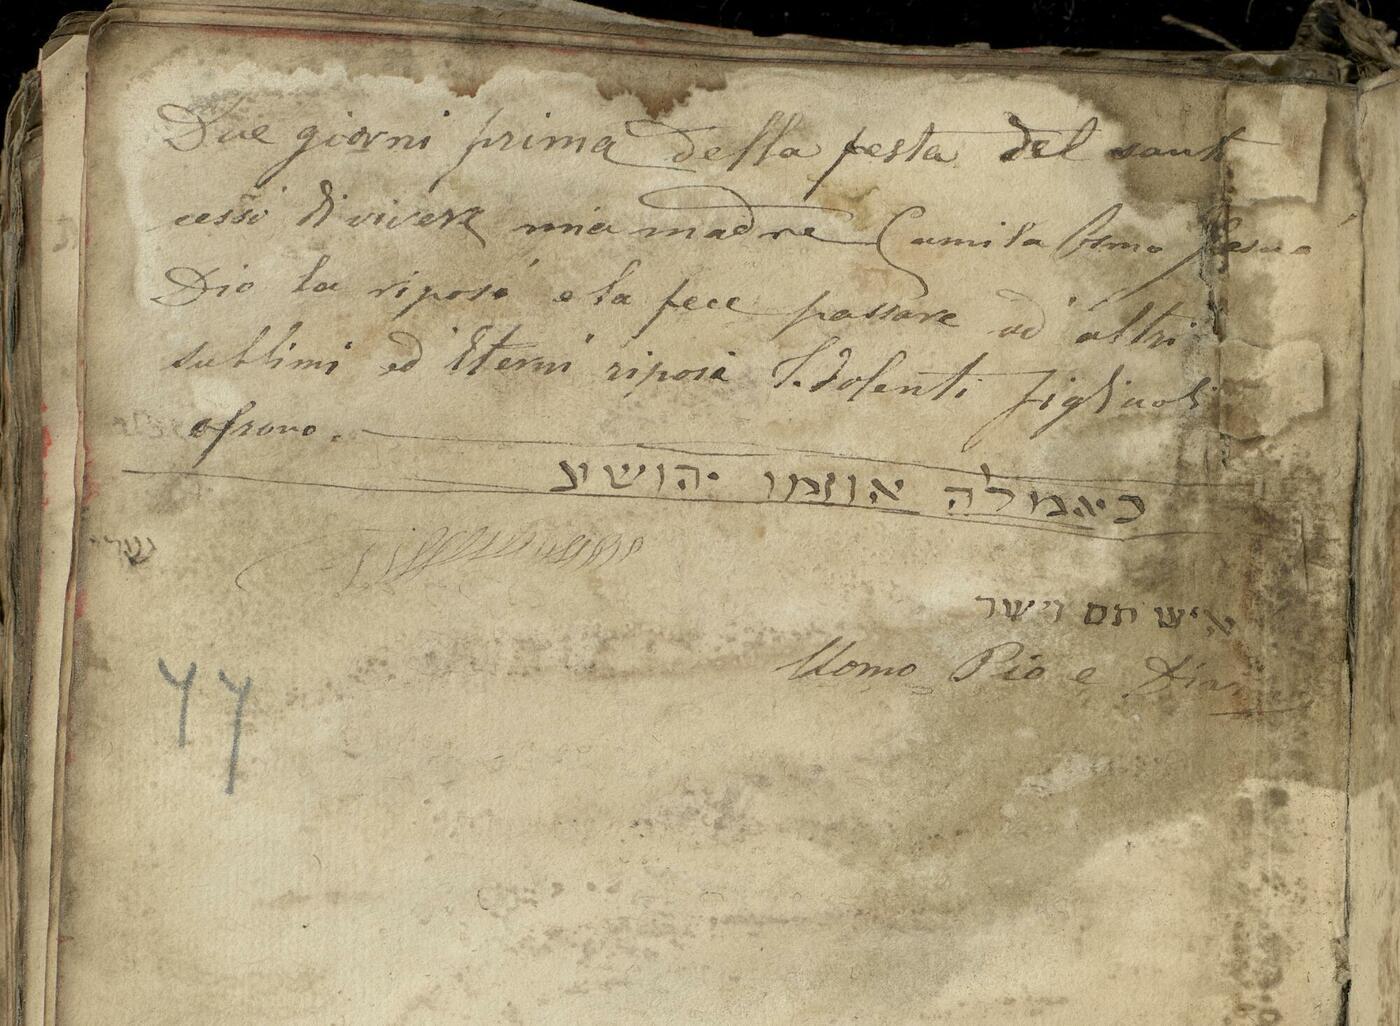 Due giorni prima della festa del sant
cessò di vivere mia madre Camila Osmo
Dio la riposi e la fece passare ad altri
sublimi ed Eterni riposi I. dolenti figliuoli
כיאמלה אוזמו יהושע
איש תם וישר
Uomo Pio e
44